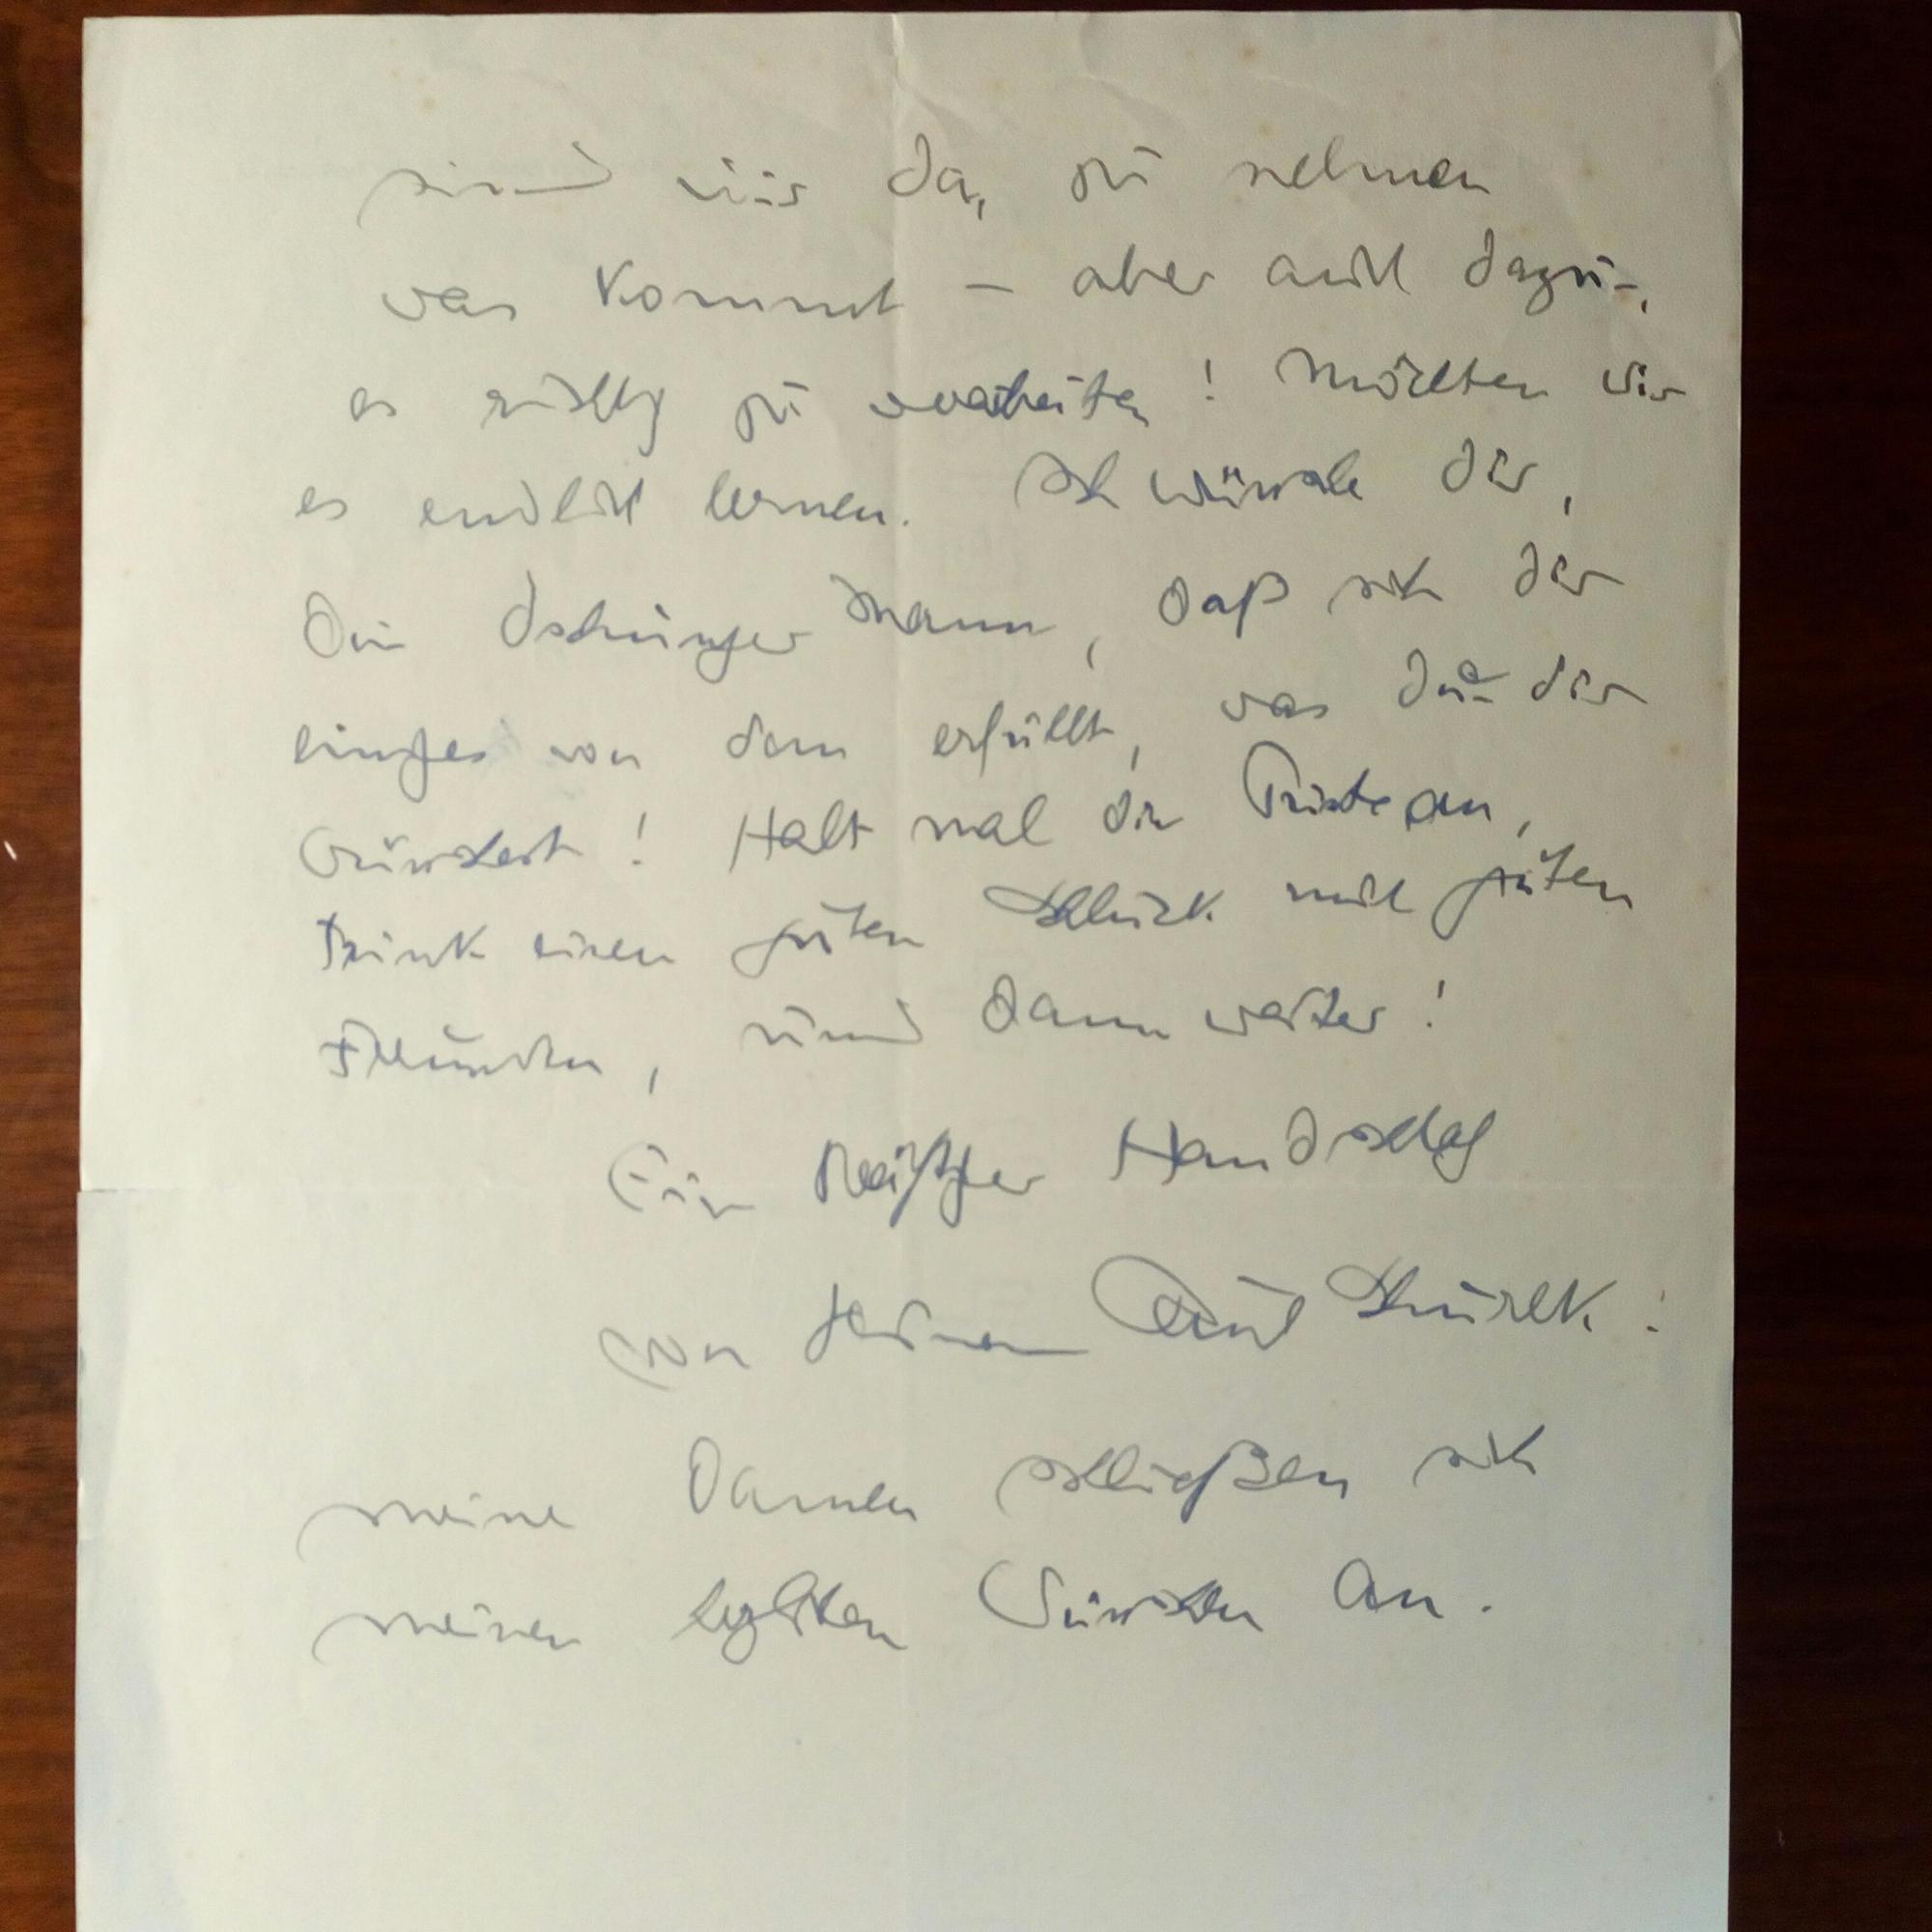 sind wir da, zu nehmen
was kommt – aber auch dazu,
es richtig zu verarbeiten! Möchten wir
es endlich lernen. Ich wünsche dir,
Du Mann, daß sich dir
einiges von dem erfüllt, was du dir
wünschest! Halt mal die Puste an,
trink einen guten Schluck mit guten
Freunden, und dann weiter!
Ein kräftiger Handschlag
von deinem Paul
meine Damen schließen sich
meinen Wünschen an.